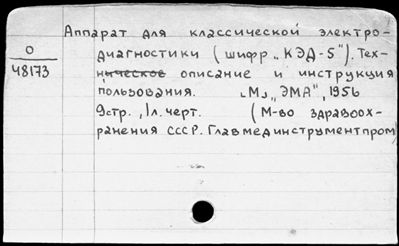 Аппарат для классической электро-
О
48173
диагностики (шифр „КЭД-5"). Тех-
ническое описание и инструкция
пользования. [М], „ЭМА", 1956
9стр., 1л. черт. (М-во здравоох-
ранения СССР. Главмединструментпром)